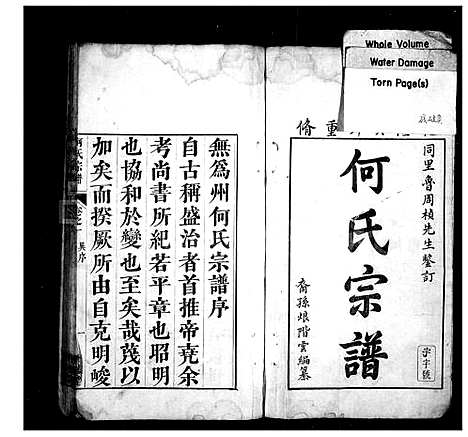 Whole Volume
Water Damage
Torn Page(s)
重脩
同里魯周楨先生鑒訂
何氏宗譜
裔孫烺階雲編纂
無爲州何氏宗譜序
自古稱盛治者首推帝堯余
考尚書所紀若平章也昭明
也協和於變也至矣哉蔑以
加矣而揆厥所由自克明峻
何氏宗譜